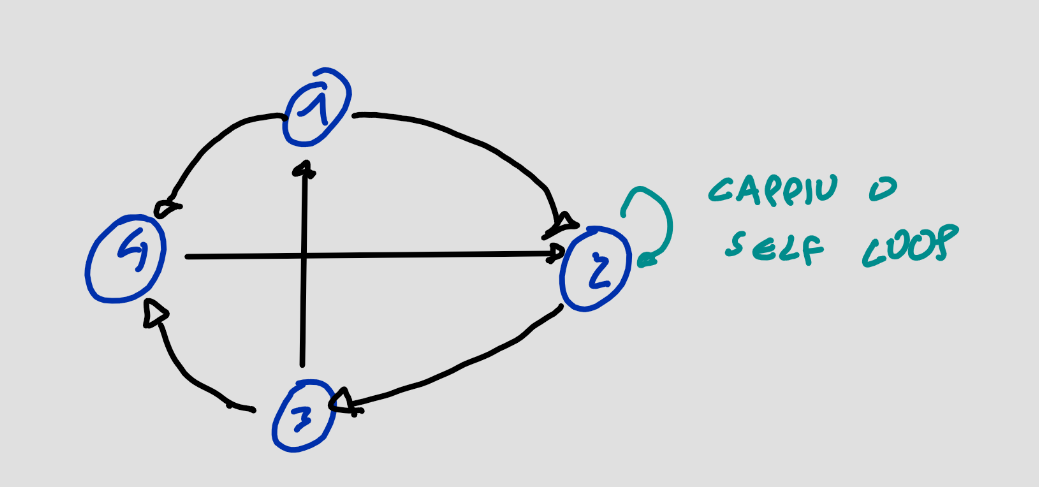 1
4
2
CAPPIU O
SELF LOOP
3